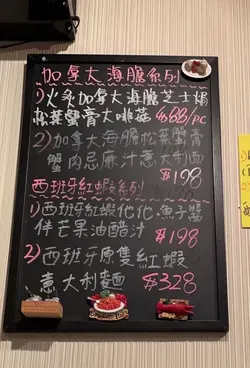 加拿大海膽系列
1)火炙加拿大海膽芝士焗
松葉蟹膏大啡菇 $88/PC
2)加拿大海膽松葉蟹膏
蟹肉忌廉汁意大利麵
$198
西班牙紅蝦系列
1)西班牙紅蝦他他魚子醬
伴芒果油醋汁 $198
2)西班牙原隻紅蝦
意大利麵 $328